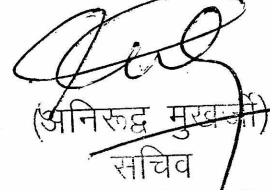 (अनिरूद्ध मुखर्जी)
सचिव